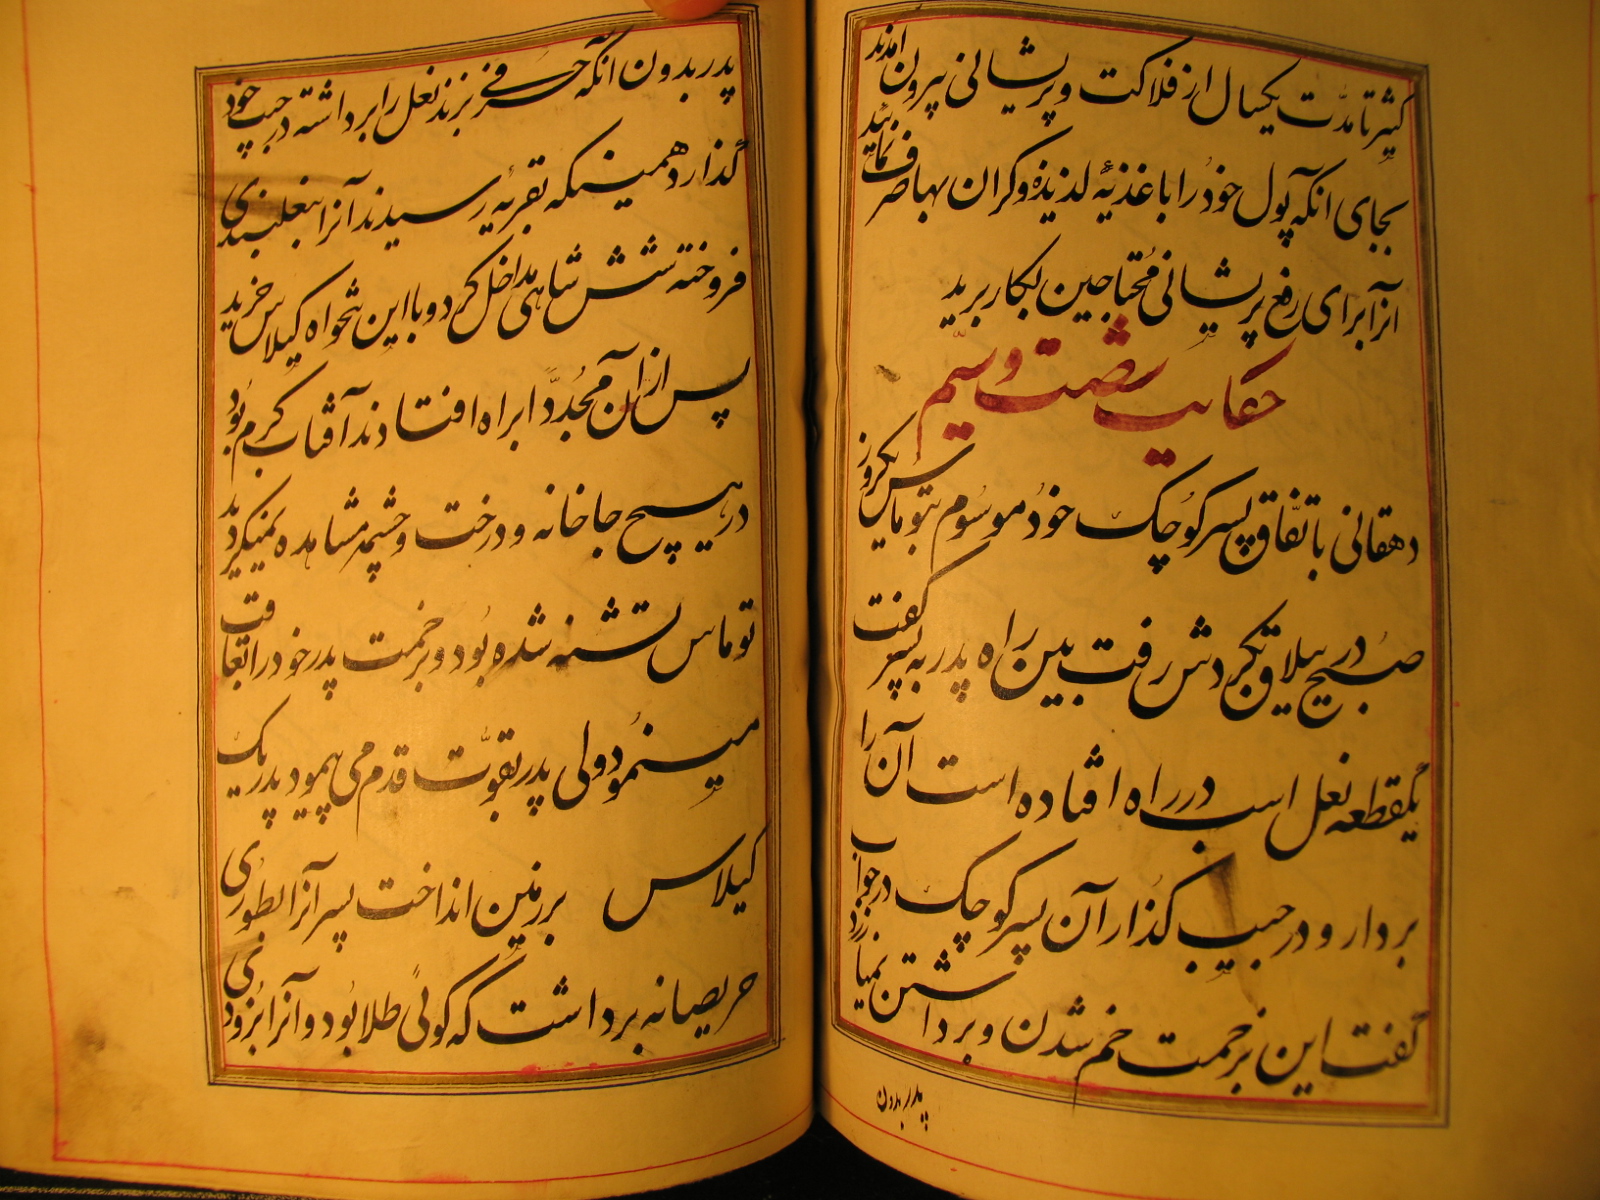 کثیر تا مدّت یکسال از فلاکت و پریشانی بیرون آمدند
بجای انکه پول خود را با غذیهٔ لذیذه و کران بها صرف نمائید
آنرا برای رفع پریشانی مُحتاجین بکار برید
حکایت شصت و سیّم
دهقانی باتفّاق پسر کوُچک خودُ موسوُم بتوماس یکروز
صُبح در ییلاق بکردش رفت بین راه پدر به پسر کفت
یکقطعه نعل اسب در راه افتاده است آن را
بردار و در جیب کذُار آن پسر کوچک در جواب
کفت این بزحمت خم شدن و برداشتن نمیارزد
پدر بدون
پدر بدون آنکه حرفی بزند نعل را برداشته در جیب خود
گذارد همینکه بقریه رسیدند آنرا بنعلبندی
فروخته شش شاهی مداخل کرد و با این تنخواه کیلاس خرید
پس از آن مُجدَّداً براه افتادند آفتاب کرم بوُد
در هیچ جا خانه و درخت و چشمه مشاهده نمیکردید
توماس تشنه شده بوُد و بزحمت پدر خود را تعاقت
مینموُد ولی پدر بقوّت قدم می پیمود پدر یک
کیلاس بر زمین انداخت پسر آنرا بطوُری
حریصانه برداشت که کوئی طلا بوُد و آنرا بزودی